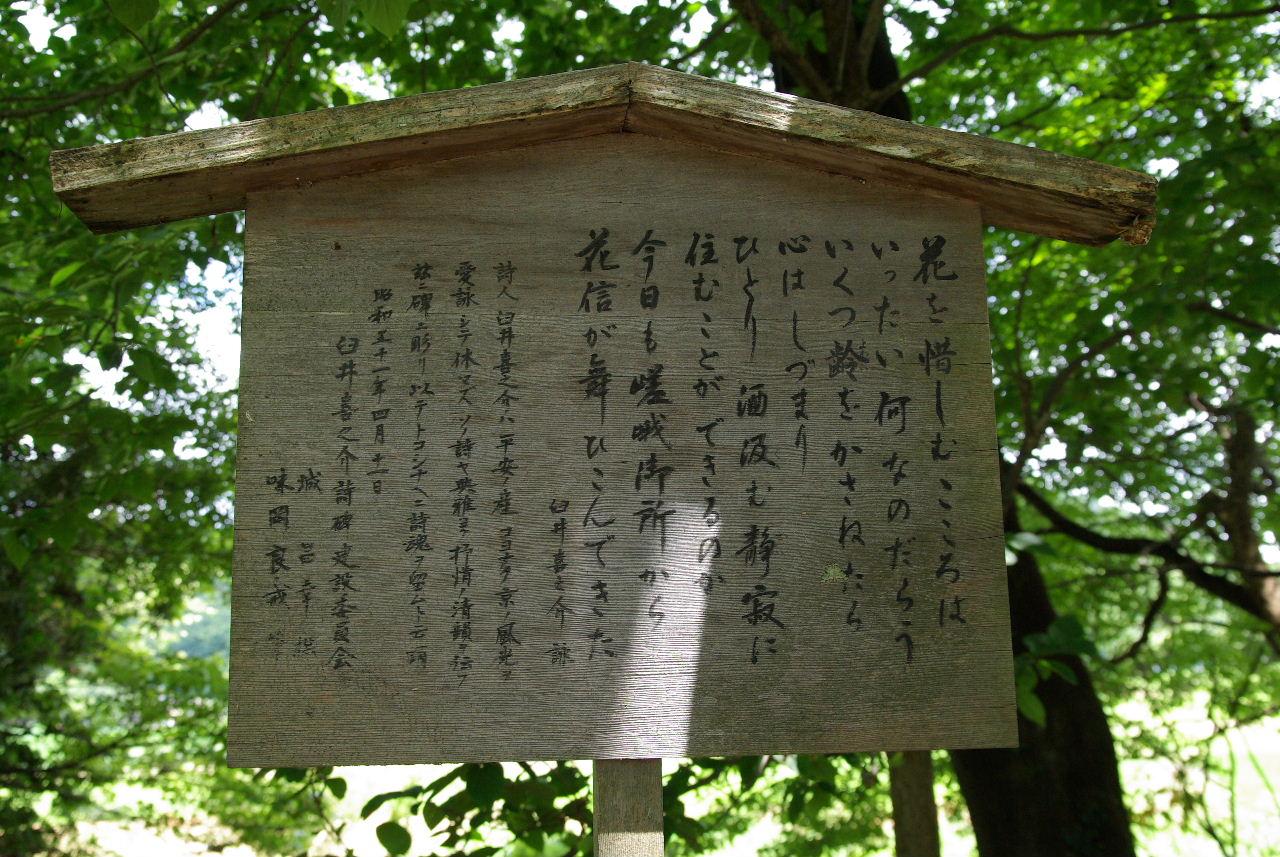 花を惜しむこころは
いったい何なのだらう
いくつ齢をかさねたら
心はしづまり
ひとり 酒汲む静寂に
住むことができるのか
今日も嵯峨御所から
花信が舞ひこんできた
臼井喜之介 詠
詩人 臼井喜之介ハ平安ノ産 コヨナク京ノ風光ヲ
愛詠シテ休マズ ソノ詩ヤ典雅ニシテ抒情ノ清韻ヲ伝フ
茲ニ碑ニ彫リ 以テトコシナヘニ詩魂ヲ留ムト云爾
昭和五十一年四月十一日
臼井喜之介詩碑建設委員会
城 呂幸
味岡良哉